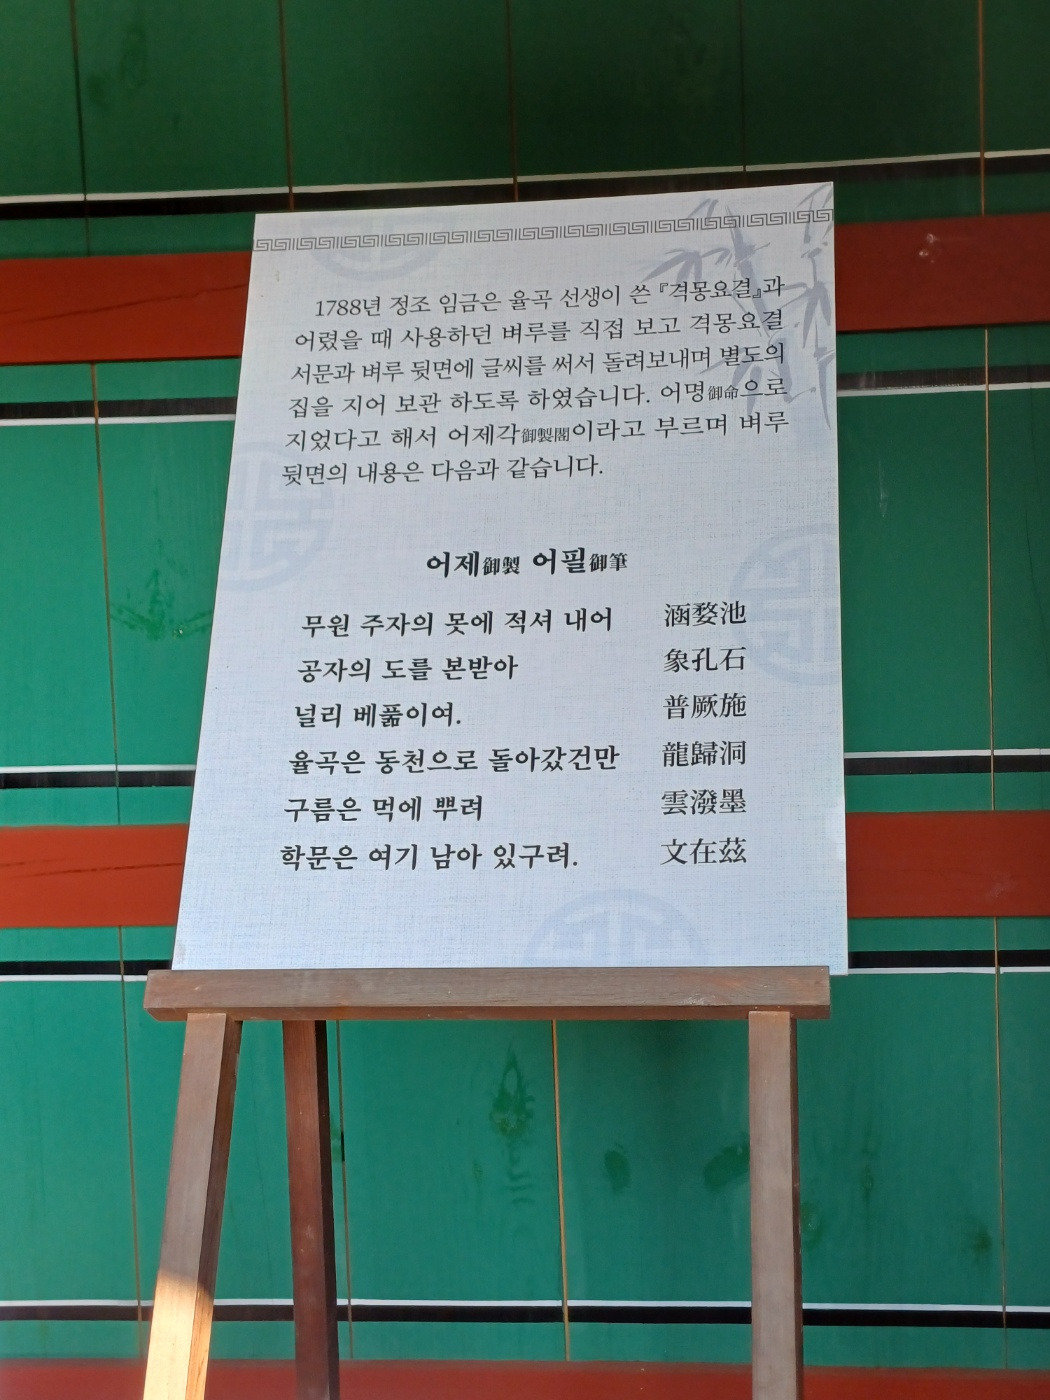 1788년 정조 임금은 율곡 선생이 쓴 『격몽요결』과
어렸을 때 사용하던 벼루를 직접 보고 격몽요결
서문과 벼루 뒷면에 글씨를 써서 돌려보내며 별도의
집을 지어 보관 하도록 하였습니다. 어명御命으로
지었다고 해서 어제각御製閣이라고 부르며 벼루
뒷면의 내용은 다음과 같습니다.
어제御製 어필御筆
무원 주자의 못에 적셔 내어 涵婺池
공자의 도를 본받아 象孔石
널리 베풂이여. 普厥施
율곡은 동천으로 돌아갔건만 龍歸洞
구름은 먹에 뿌려 雲潑墨
학문은 여기 남아 있구려. 文在茲